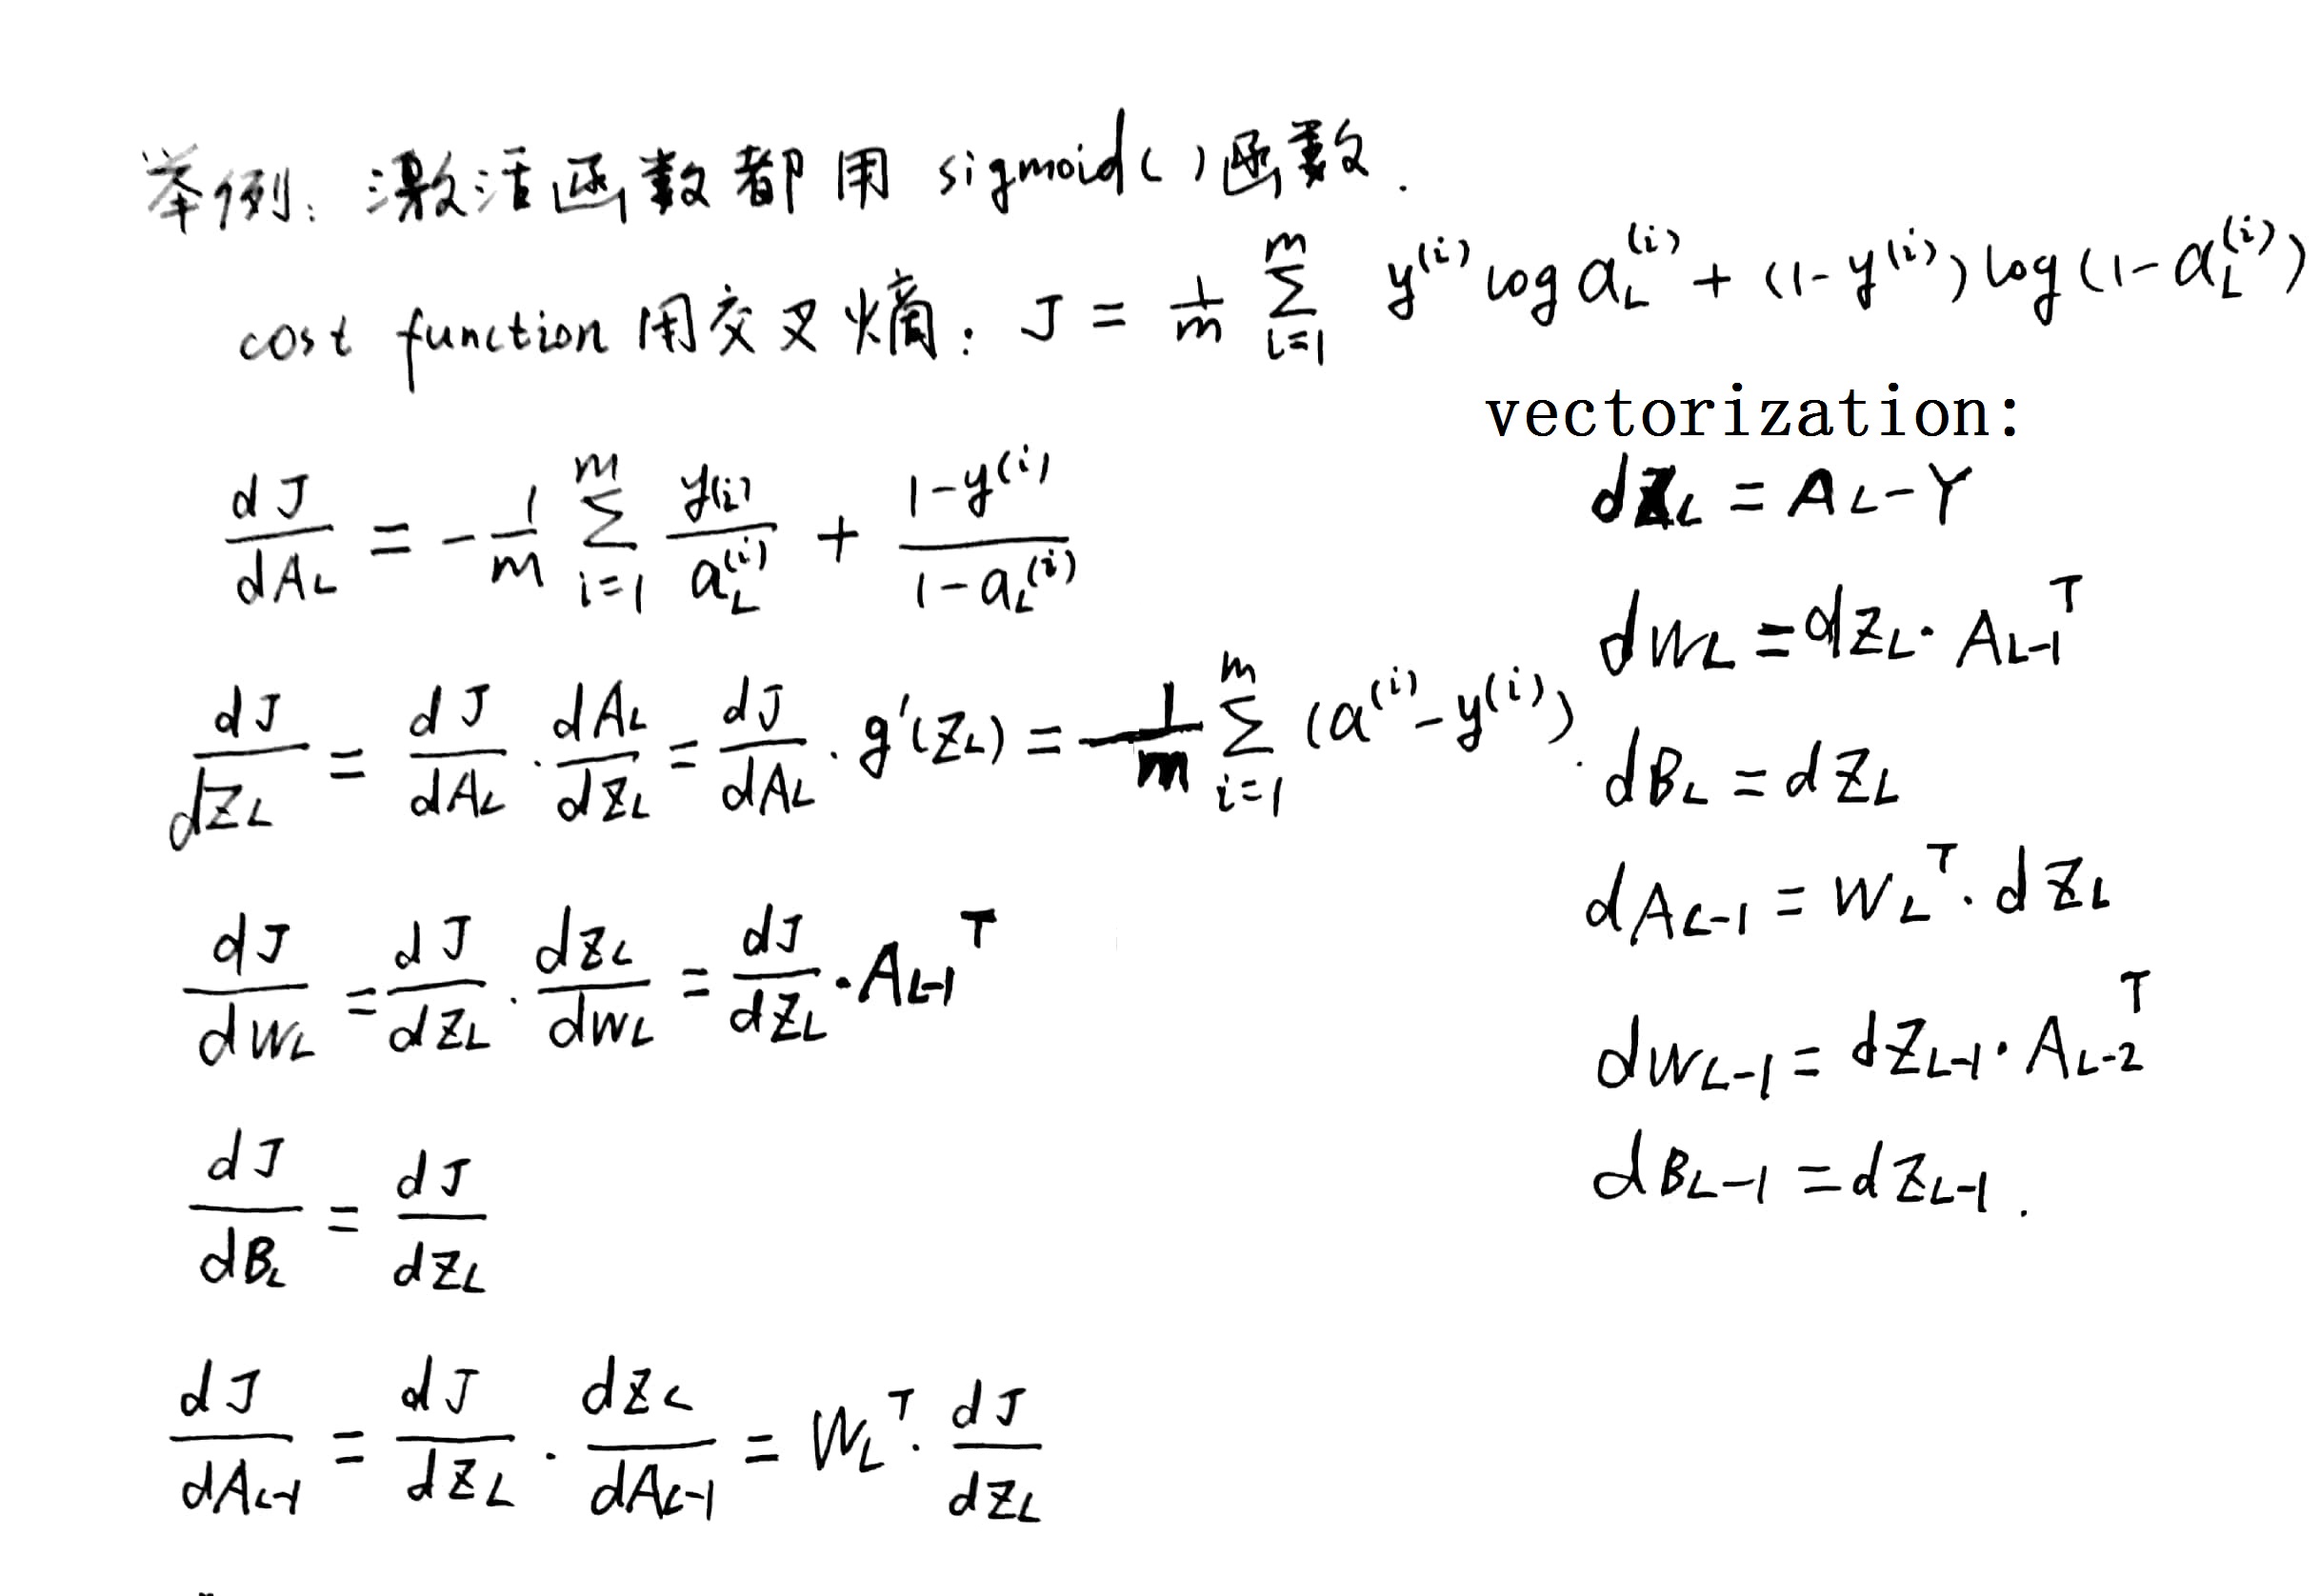 举例: 激活函数都用 sigmoid( ) 函数.
cost function 用交叉熵: J = \frac{1}{m} \sum_{i=1}^{m} y^{(i)} log a_L^{(i)} + (1-y^{(i)}) log (1-a_L^{(i)})
\frac{dJ}{dA_L} = -\frac{1}{m} \sum_{i=1}^{m} \frac{y^{(i)}}{a_L^{(i)}} + \frac{1-y^{(i)}}{1-a_L^{(i)}}
\frac{dJ}{dZ_L} = \frac{dJ}{dA_L} · \frac{dA_L}{dZ_L} = \frac{dJ}{dA_L} · g'(Z_L) = \frac{1}{m} \sum_{i=1}^{m} (a^{(i)} - y^{(i)}).
\frac{dJ}{dW_L} = \frac{dJ}{dZ_L} · \frac{dZ_L}{dW_L} = \frac{dJ}{dZ_L} · A_{L-1}^T
\frac{dJ}{dB_L} = \frac{dJ}{dZ_L}
\frac{dJ}{dA_{L-1}} = \frac{dJ}{dZ_L} · \frac{dZ_L}{dA_{L-1}} = W_L^T · \frac{dJ}{dZ_L}
vectorization:
dZ_L = A_L - Y
dW_L = dZ_L · A_{L-1}^T
dB_L = dZ_L
dA_{L-1} = W_L^T · dZ_L
dW_{L-1} = dZ_{L-1} · A_{L-2}^T
dB_{L-1} = dZ_{L-1}.